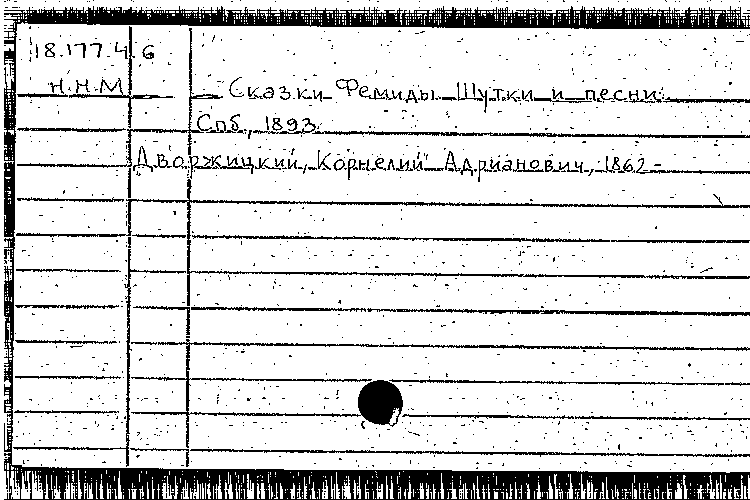 18.177.4.6
Н.Н.М. — Сказки Фемиды. Шутки и песни.
Спб., 1893.
Дворжицкий, Корнелий Адрианович, 1862-